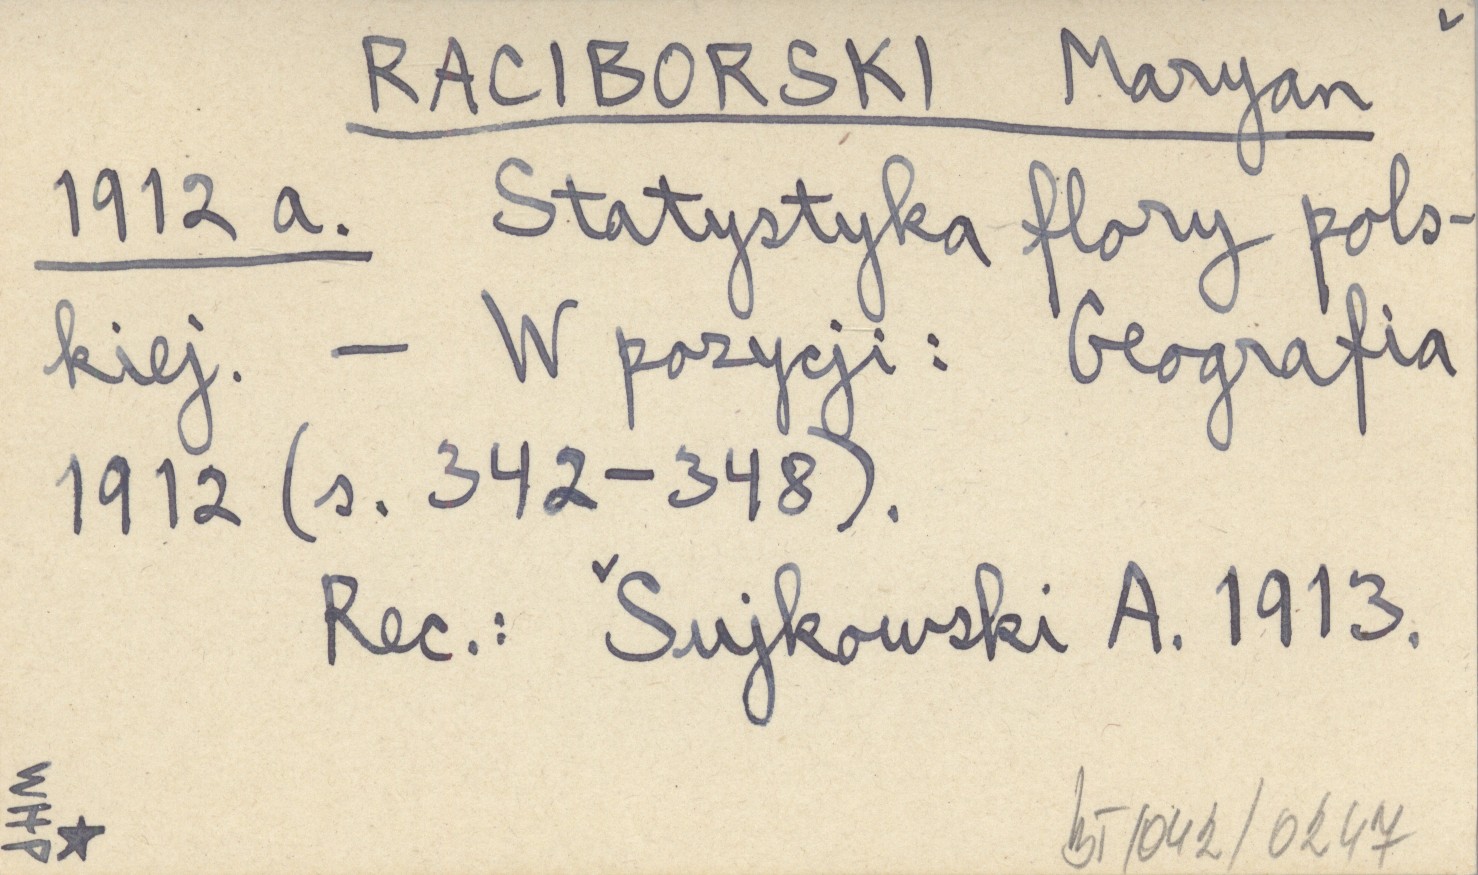 RACIBORSKI Maryan
1912 a. Statystyka flory pols-
kiej. — W pozycji: Geografia
1912 (s. 342-348).
Rec.: Sujkowski A. 1913.
WHP
/042/0247